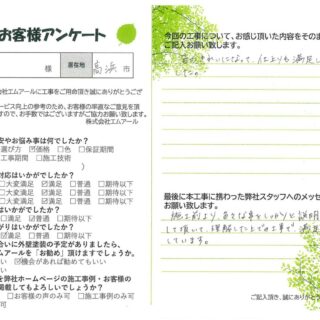 お客様アンケート
様
居在地
高浜
市
会社エムアールに工事をご用命頂き誠にありがとうござ
ービス向上の参考のため、お客様の率直なご意見を頂
すので、お手数ではございますがご協力お願い致します。
株式会社エムアール
安やお悩み事は何でしたか?
選び方 ☑価格 □色 □保証期間
工事期間 □施工技術
対応はいかがでしたか?
□大変満足 ☑満足 □普通 □期待以下
はいかがでしたか?
がりはいかがでしたか?
合いに外壁塗装の予定がありましたら、
エムアールを「お勧め」頂けますでしょうか。
☑機会があれば勧めてもいい
を弊社ホームページの施工事例・お客様の
掲載してもよろしいでしょうか?
□お客様の声のみ可 □施工事例のみ可
今回の工事について、お感じ頂いた内容をそのま
ご記入お願い致します。
きれいになって、仕上りも満足し
ました。
最後に本工事に携わった弊社スタッフへのメッセ
お願い致します。
施工前より、色々な事をしっかりと説明
して頂いて、理解した上での工事で満足
しています。
ご記入頂き、誠にありがとう